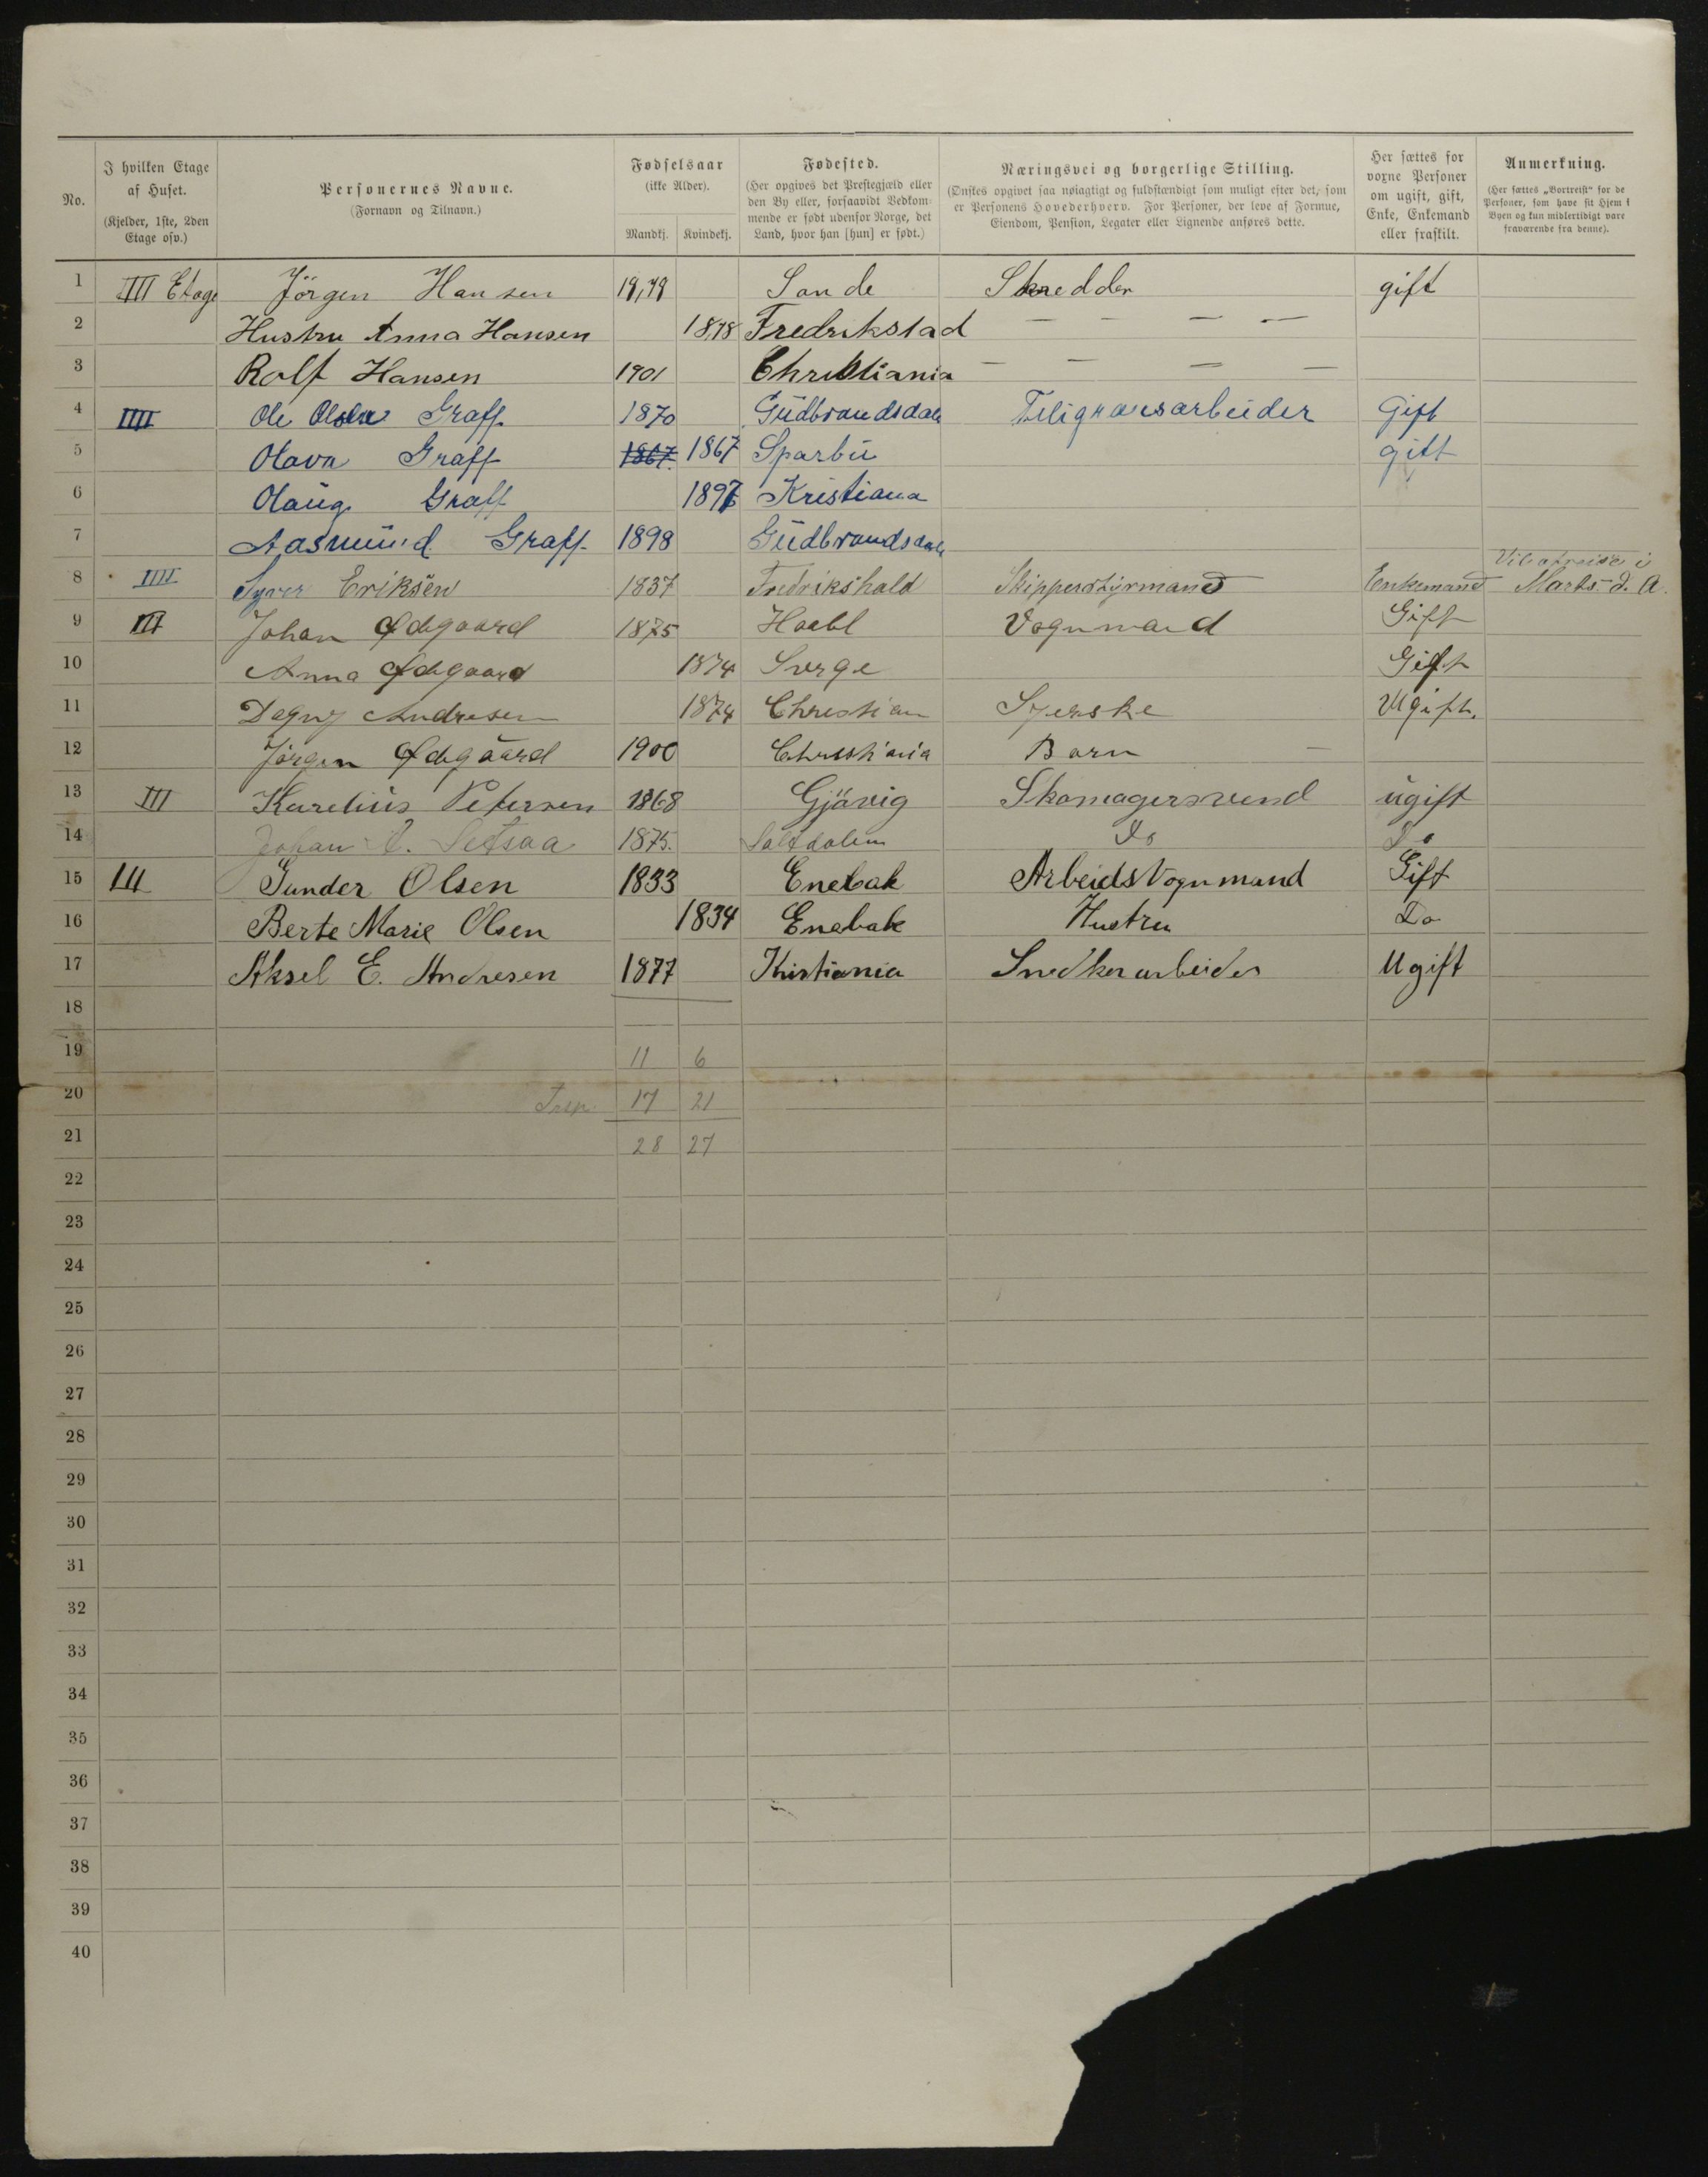 No. I hvilken Etage af Huset. (Kjelder, 1ste, 2den Etage osv.) Personernes Navne. (Fornavn og Tilnavn.) Fødselsaar (ikke Alder). Mandkj. Kvindekj. Fødested. (Her opgives det Prestegjæld eller den By eller, forsaavidt Vedkommende er født udenfor Norge, det Land, hvor han [hun] er født.) Næringsvei og borgerlige Stilling. (Ønskes opgivet saa nøiagtigt og fuldstændigt som muligt efter det, som er Personens Hovederhverv. For Personer, der leve af Formue, Eiendom, Pension, Legater eller Lignende anføres dette. Her sættes for voxne Personer om ugift, gift, Enke, Enkemand eller fraskilt. Anmerkning. (Her sættes „Bortreist“ for de Personer, som have sit Hjem i Byen og kun midlertidigt vare fraværende fra denne).
1 IIII Etage Jörgen Hansen Sande Skredder gift
2 Hustru Anna Hansen 1878 Fredrikstad — — — —
3 Rolf Hansen 1901 Christiania — — — —
4 IIII Ole Graff 1870 Gudbrandsdalen Gift
5 Olava Graff 1867 1867 Sparbu gift
6 Olaug Graff Kristiana
7 Aasmund Graff 1898 Gudbrandsdale
8 IIII Syver Eriksen 1837 Fredrikshald Skipperstyrmand Enkemand Marts. d. A.
9 III Johan Ødegaard 1875 Vognmand Gift
10 Anna Ødegaard 1874 Sverge Gift
11 Dagny Andresen 1874 Christian Syerske Ugift.
12 Jörgen Ødegaard 1900 Christiania Barn —
13 III Karelius Petersen 1868 Gjövig Skomagersvend ugift
14 Johan Setsaa 1875. Saltdalen Do Do
15 III Gunder Olsen 1833 Enebak Arbeids Vognmand Gift
16 Berte Marie Olsen 1834 Enebak Hustru Do
17 Aksel E. Andresen 1877 Kristiania Snedkerarbeider Ugift
18
19 11 6
20 17 21
21 28 27
22
23
24
25
26
27
28
29
30
31
32
33
34
35
36
37
38
39
40